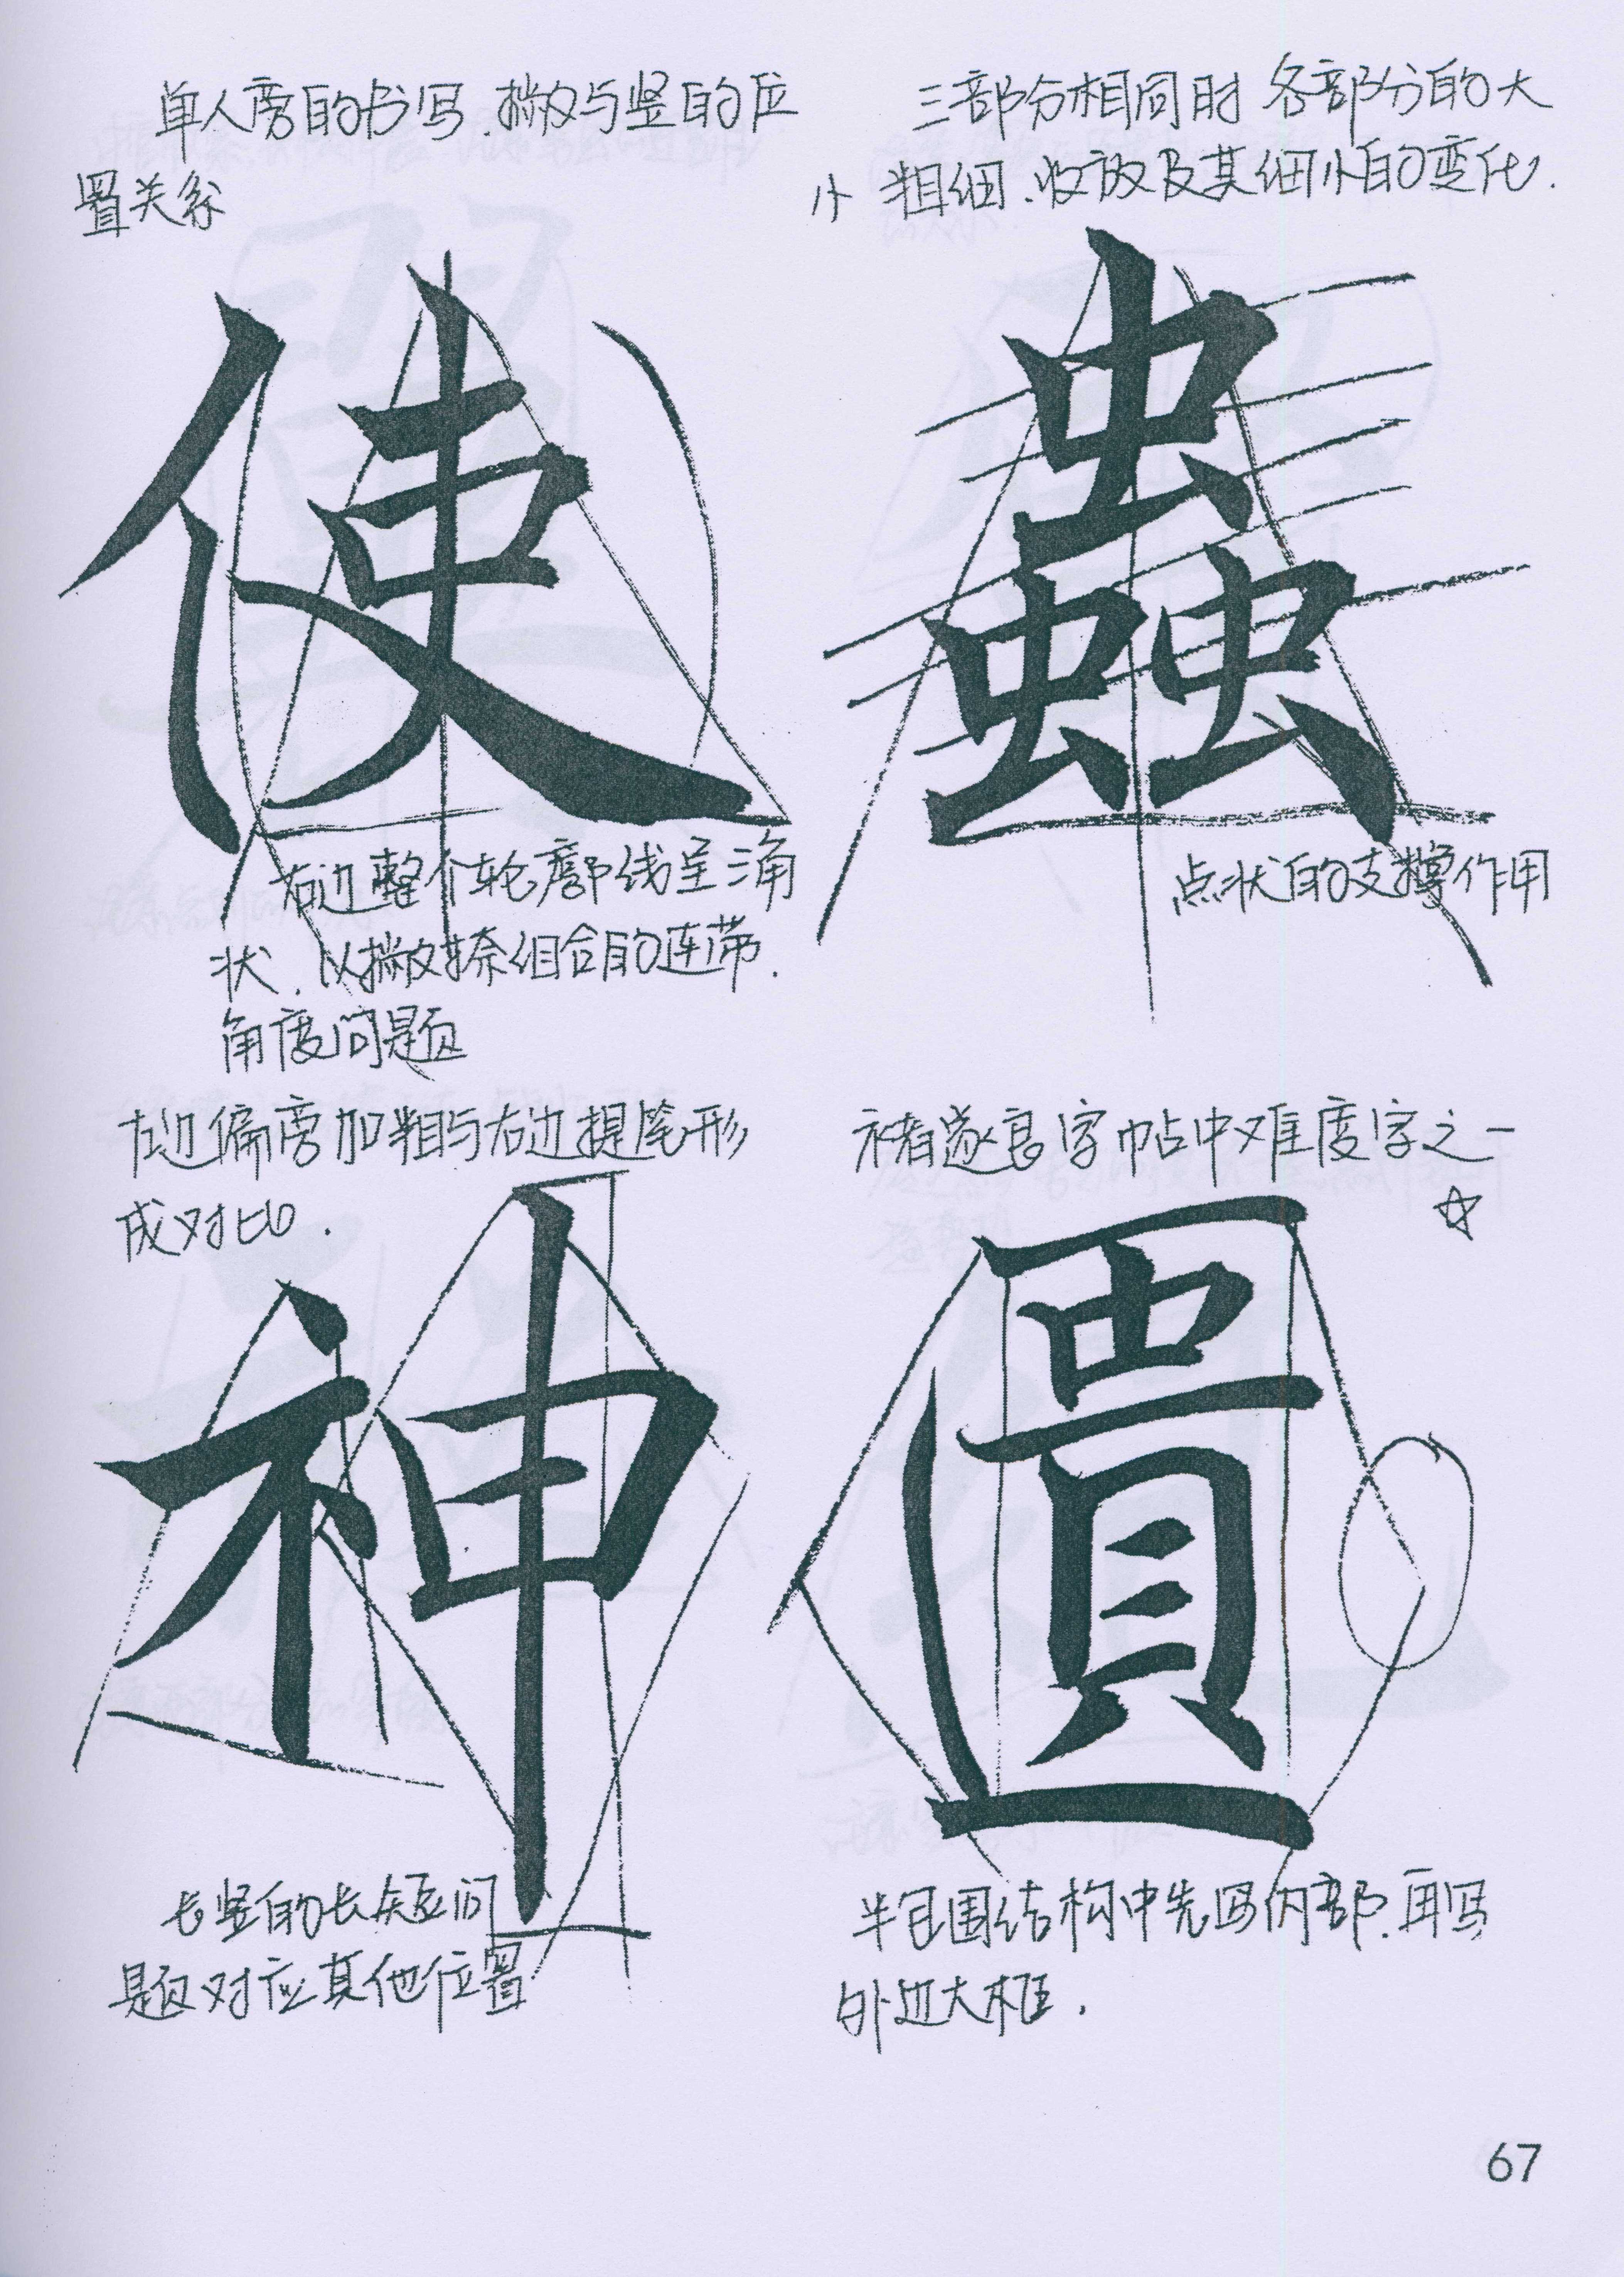 单人旁的书写.撇与竖的位
置关系
使
右边整个轮廓线呈三角
状.以撇捺组合的连带.
角度问题
三部分相同时 各部分的大
小 粗细.收放及其细小的变化.
蟲
点状的支撑作用
左边偏旁加粗与右边提笔形
成对比.
神
长竖的长短问
题对应其他位置
褚遂良字帖中难度字之一
☆
匱
半包围结构中先写内部.再写
外边大框.
67